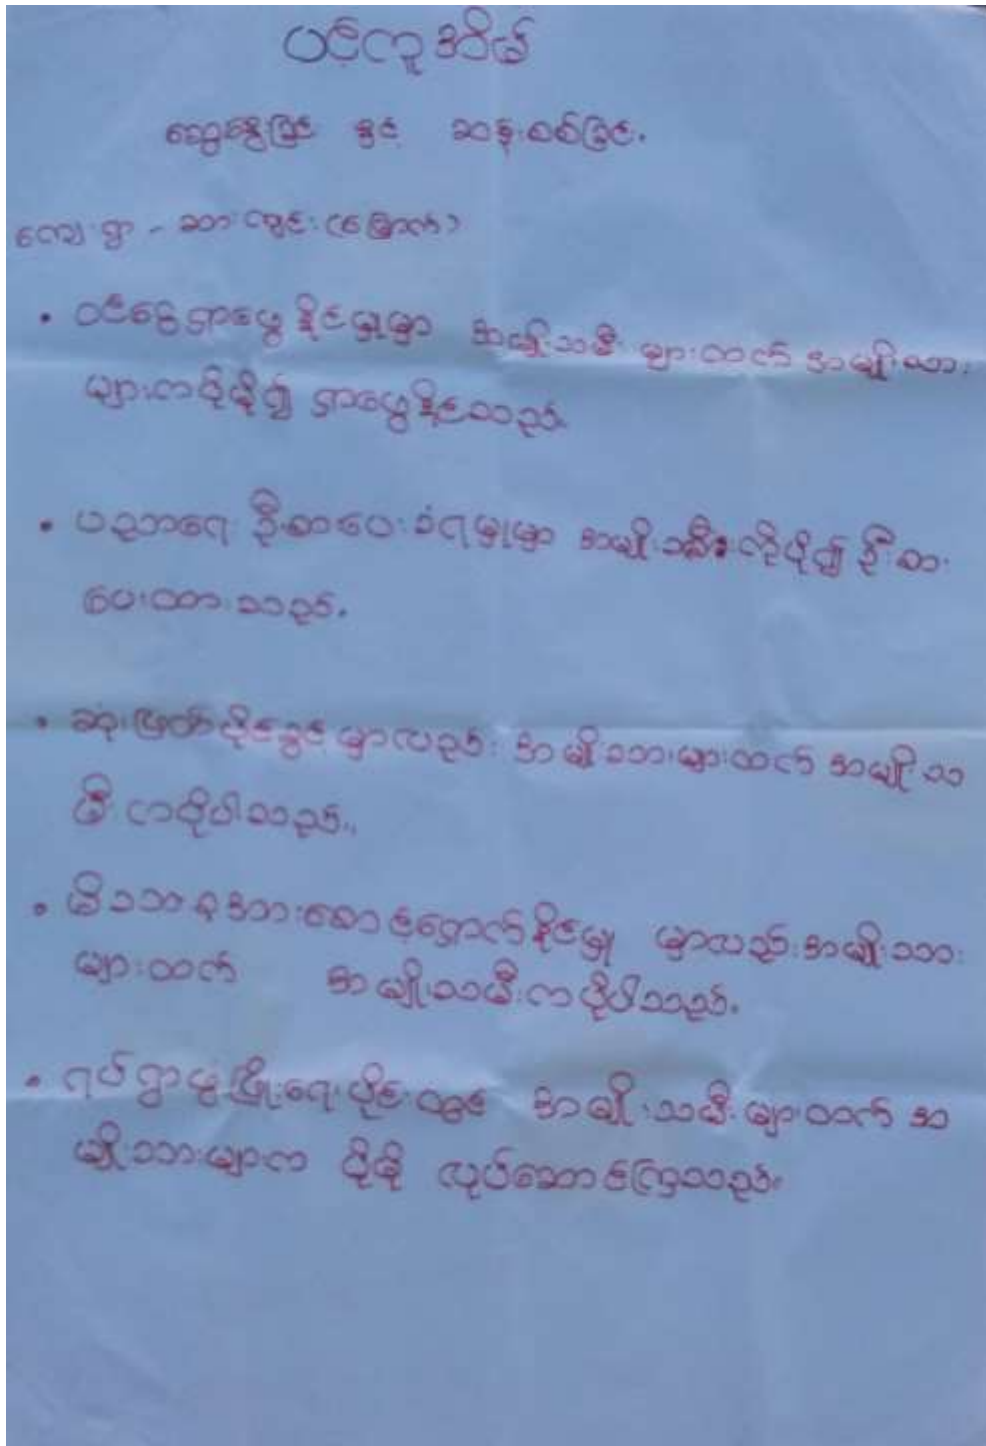 ပင့်ကူအိမ်
ဆွေးနွေးခြင်း နှင့် ဆန်းစစ်ခြင်း.
ကျေးရွာ - ဆားကွင်း (မြောက်)
• ဝင်ငွေရှာဖွေနိုင်မှုမှာ အမျိုးသမီး များထက် အမျိုးသား
များကပိုမို၍ ရှာဖွေနိုင်သည်.
• ပညာရေး ဦးစားပေးခံရမှုမှာ အမျိုးသမီးကိုပို၍ ဦးစား
ပေးထားသည်.
• ဆုံးဖြတ်ပိုင်ခွင့် မှာလည်း အမျိုးသားများထက် အမျိုးသ
မီး ကပိုပါသည်..
• မိသားစုအားစောင့်ရှောက်နိုင်မှု မှာလည်းအမျိုးသား
များထက် အမျိုးသမီးကပိုပါသည်.
• ရပ်ရွာဖွံ့ဖြိုးရေးပိုင်းတွင် အမျိုးသမီးများထက် အ
မျိုးသားများက ပိုမို လုပ်ဆောင်ကြသည်.